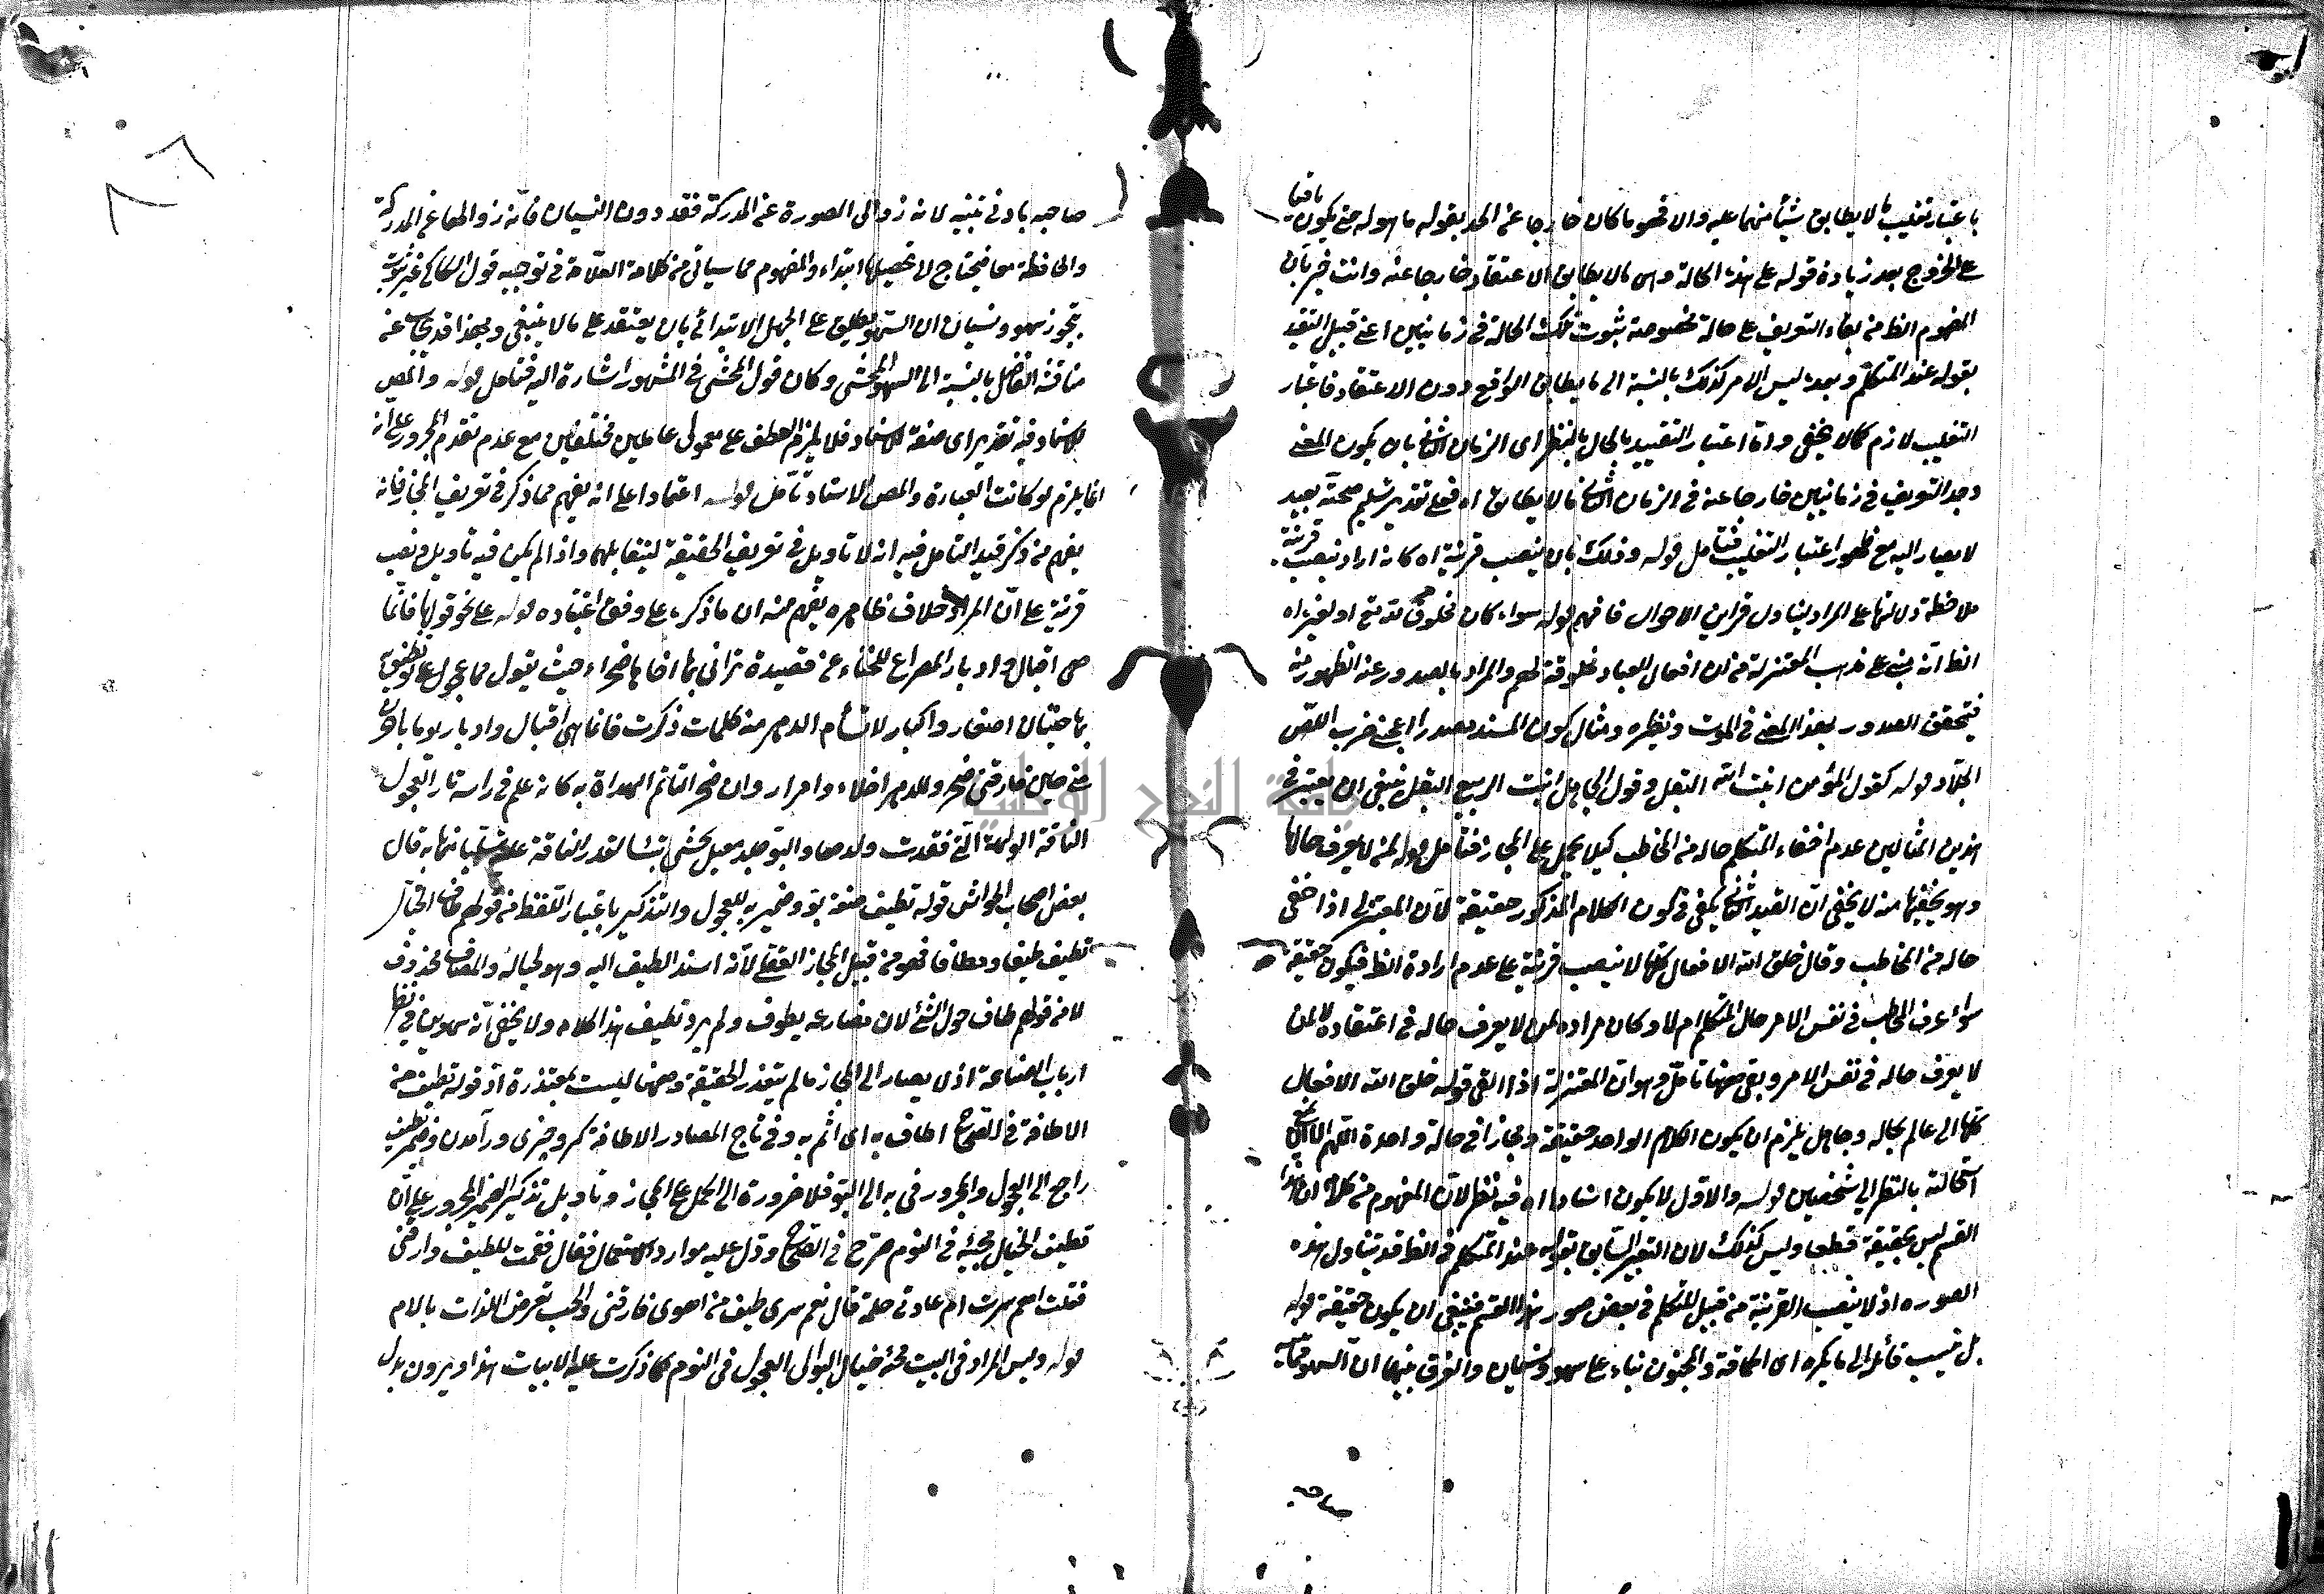 باعتبار تغليب ما لا يطابق شيئا منهما عليه والا فهو ما كان خارجا عن الحد بقوله ما هو له حتى يكون باقيا
على الخروج بعد زيادة قوله على هذه الحالة وهى ما لا يطابق الاعتقاد خارجا عنه وانت خبير بان
المفهوم الظ من بقاء التعريف على حالة مخصوصة ثبوت تلك الحالة فى زمانين اعنى قبيل التقييد
بقوله عند المتكلم وبعده ليس الامر كذلك بالنسبة الى ما يطابق الواقع دون الاعتقاد فاعتبار
التغليب لازم كما لا يخفى واما اعتبار التقييد بالحال بالنظر الى الزمان الثانى بان يكون المعنى
وجد التعريف فى زمانين خارجا عنه فى الزمان الثانى ما لا يطابق اه فعلى تقدير تسليم صحته بعيد
لا يصار اليه مع ظهور اعتبار التغليب فتامل قوله وذلك بان ينصب قرينة اه كانه اراد بنصب قرينة
ملاحظة دلالتها على المراد ليتناول قراين الاحوال فافهم قوله سواء كان مخلوقة لله تع او لغيره اه
الظ انه بنى على مذهب المعتزلة من ان افعال العباد مخلوقة لهم والمراد بالصدور عنه الظهور منه
فيتحقق الصدور بهذا المعنى فى الموت ونظيره ومثال كون المسند مصدرا اعجبنى ضرب اللص
الجلاد قوله كقول المؤمن انبت الله البقل وقول الجاهل انبت الربيع البقل ينبغى ان يعتبر فى
هذين المثالين عدم اخفاء المتكلم حاله من المخاطب كيلا يحمل على المجاز فتامل قوله لمن لا يعرف حاله
وهو يخفيها منه لا يخفى ان القيد الثانى يكفى فى كون الكلام المذكور حقيقة لان المعتزلى اذا اخفى
حاله من المخاطب وقال خلق الله الافعال كلها لا ينصب قرينة على عدم ارادة الظ فيكون حقيقة
سواء عرف المخاطب فى نفس الامر حال المتكلم ام لا وكان مراده لمن لا يعرف حاله فى اعتقاده لا لمن
لا يعرف حاله فى نفس الامر وبقى ههنا تامل وهو ان المعتزلة اذا القى قوله خلق الله الافعال
كلها الى عالم بحاله وجاهل يلزم ان يكون الكلام الواحد حقيقة ومجازا فى حالة واحدة اللهم الا ان يمنع
استحالته بالنظر الى شخصين قوله والاول لا يكون اسنادا اه فيه نظر لان المفهوم من كلامه ان هذا
القسم ليس بحقيقة قطعا وليس كذلك لان التعبير السابق بقوله عند المتكلم فى الظ قد يتناول هذه
الصورة اذ لا ينصب القرينة من قبيل المتكلم فى بعض صور هذا القسم فينبغى ان يكون حقيقة قوله
بل ينسب قائله الى ما يكره اى الحماقة والجنون بناء على سهو ونسيان والفرق بينهما ان السهو
صاحبه
صاحبه بادنى تنبيه لانه زوال الصورة عن المدركة فقد دون النسيان فانه زوالها عن المدركة
والحافظة معا فيحتاج لا تحصيلها ابتداء والمفهوم مما سياتى من كلامه العلامة فى توجيه قول السكاكى
بتجوز سهو ونسيان ان السهو يطلق على الجهل الابتدائى بان يعتقد على ما لا ينبغى وبهذا قد يجاب عن
مناقشة الفاضل بالنسبة الى السهو المحشى وكان قول المحشى فى المشهور اشارة اليه فتامل قوله والمص
للاسناد فيه تقدير اى صفة للاسناد فلا يلزم العطف على معمولى عاملين مختلفين مع عدم تقدم المجرور على انه
انما يلزم لو كانت العبارة والمص الاسناد تامل قوله اعتمادا على انه يفهم مما ذكر فى تعريف المجاز فانه
يفهم من ذكر قيد التامل فيه انه لا تاويل فى تعريف الحقيقة لتقابلهما واذا لم يكن فيه تاويل ونصب
قرينة على ان المراد خلاف ظاهره يفهم منه ان ما ذكره على وفق اعتقاده قوله على نحو قولها فانما
هى اقبال وادبار المصراع للخنساء من قصيدة ترثى بها اخاها صخرا حيث يقول فما عجول على بو تطيف به
لها حنينان اصغار واكبار لا تسأم الدهر منه كلما ذكرت فانما هى اقبال وادبار يوما باوجد
منى حين فارقنى صخر وللدهر احلاء وامرار وان صخرا لتاتم الهداة به كانه علم فى راسه نار العجول
الناقة الوالهة التى فقدت ولدها والبو جلد فصيل يحشى تبنا لتدر الناقة به قال
بعض اصحاب الحواشى قوله تطيف صفة بو وضمير به للعجول والتذكير باعتبار اللفظ من قولهم طاف الخيال
تطيف طيفا ومطافا فهو من قبيل المجاز العقلى لانه اسند الطيف اليه وهو لخياله والمضاف محذوف
لا من قولهم طاف حول الشئ لان مضارعه يطوف ولم يرد تطيف هذا كلامه ولا يخفى انه سهو بين فى نظر
ارباب الصناعة اذ لا يصار الى المجاز ما لم يتعذر الحقيقة وههنا ليست بمتعذرة اذ قوله تطيف من
الاطافة فى الصحاح اطاف به اى الم به وفى تاج المصادر الاطافة كرد چيزى در آمدن وضمير تطيف
راجع الى العجول والمجرور فى به الى البو فلا ضرورة الى الحمل على المجاز وتاويل تذكير الضمير المجرور على ان
تطيف الخيال مجيئه فى النوم صرح فى الصحاح ودل عليه موارد الاستعمال فقال فقمت للطيف وارقنى
فقلت اهى سرت ام عادنى حلم قال نعم سرى طيف من اهوى فارقنى والحب يعترض اللذات بالالم
قوله وليس المراد فى البيت مجئ خيال البو الى العجول فى النوم كما ذكرت عليه الابيات هذا ويرون بدل